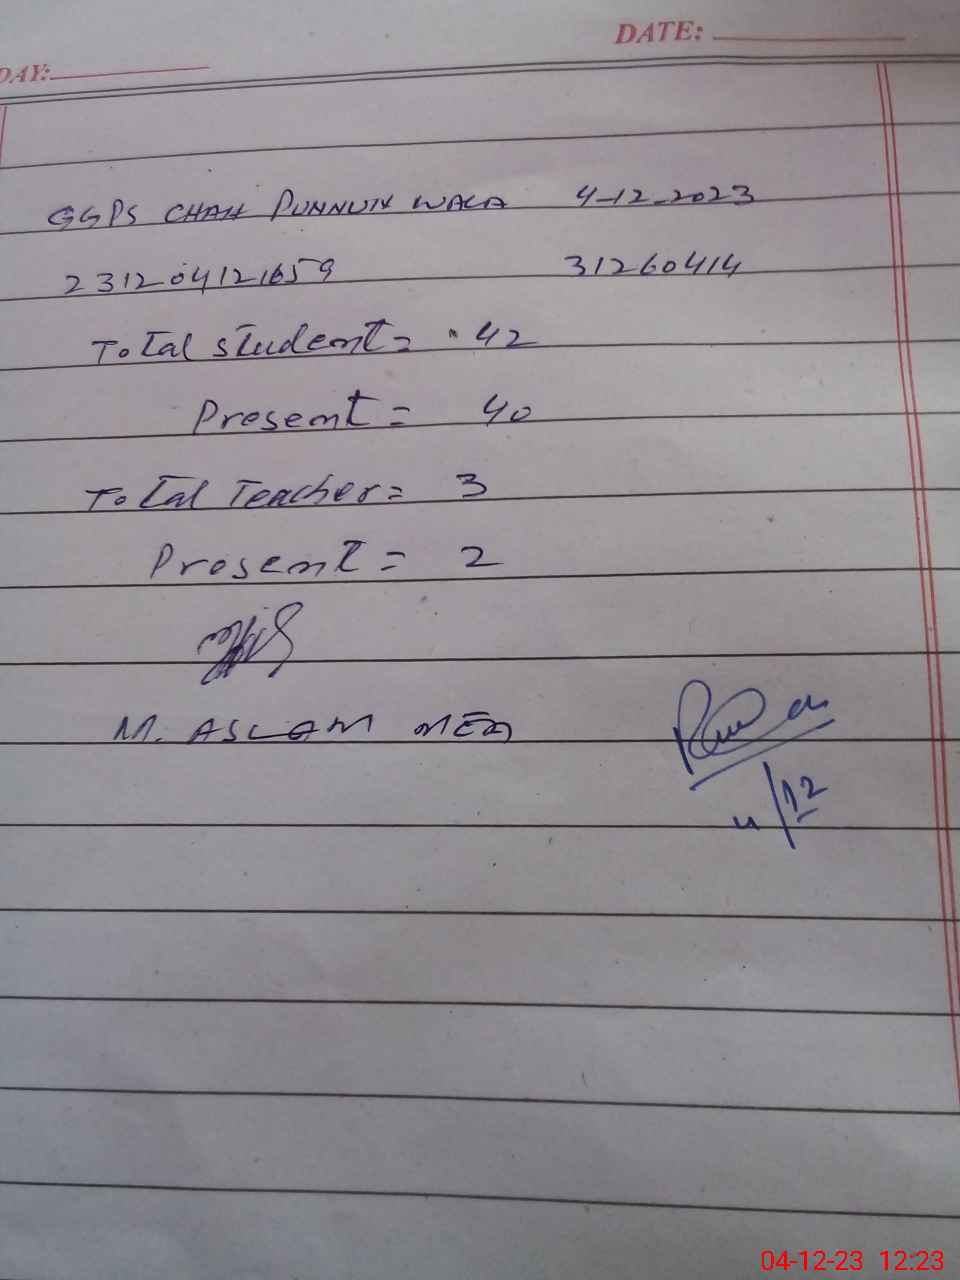 DATE:
DAY:
GGPS CHAH PUNNUN WALA 4-12-2023
231204121659 31260414
Total student = 42
Present = 40
Total Teacher = 3
Present = 2
M. ASLAM MEA
4/12
04-12-23 12:23